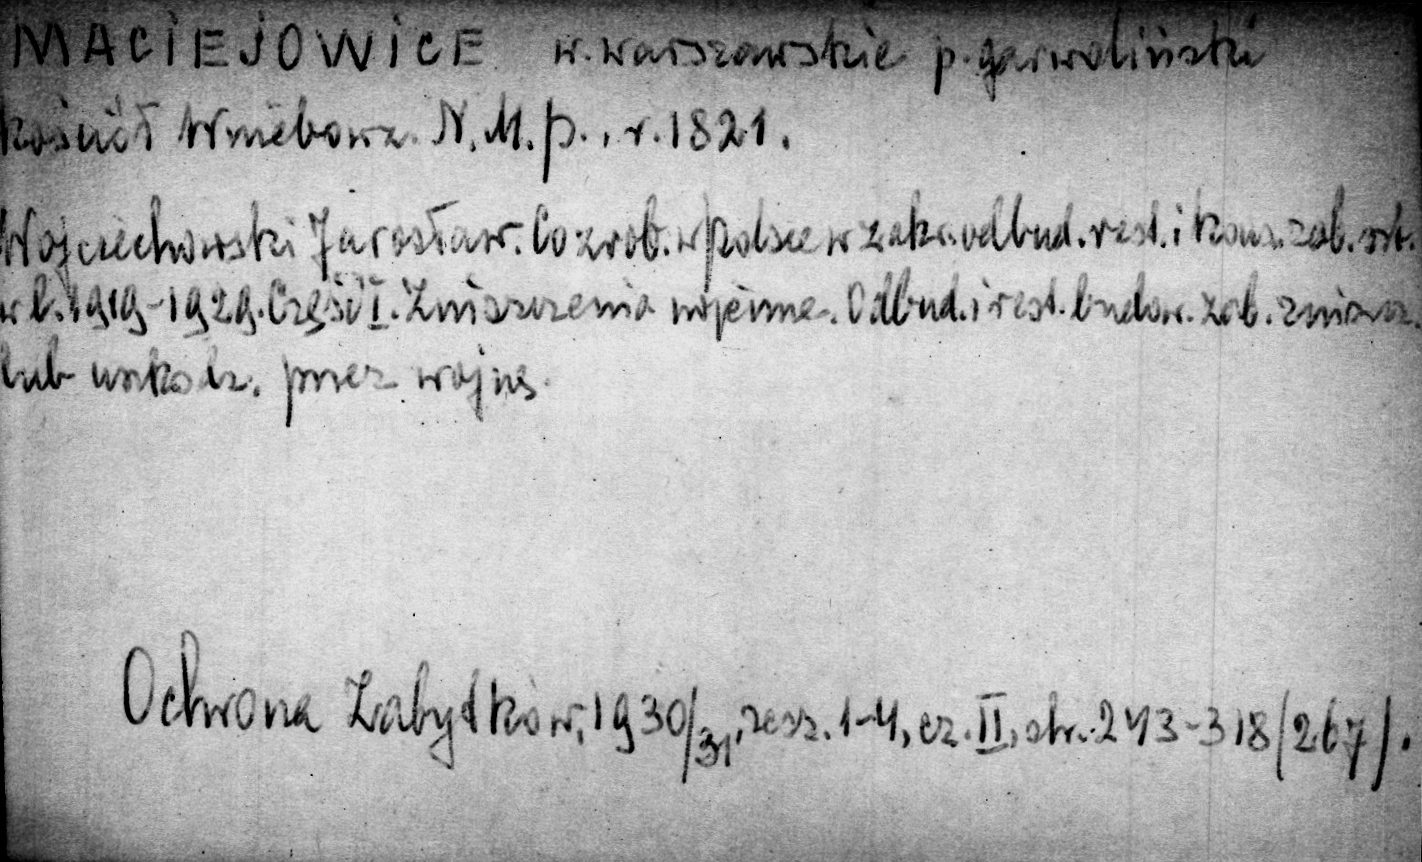 MACIEJOWICE w. warszawskie p. garwoliński
kościół Wniebowz. N.M.P., r. 1821.
Wojciechowski Jarosław. Co zrob. w Polsce w zakr. odbud. rest. i kons. zab. szt.
w l. 1919-1929. Część I. Zniszczenia wojenne. Odbud. i rest. budow. zab. zniszcz.
lub uszkodz. przez wojnę.
Ochrona Zabytków, 1930/31, zesz. 1-4, cz. II, str. 243-318 (267).